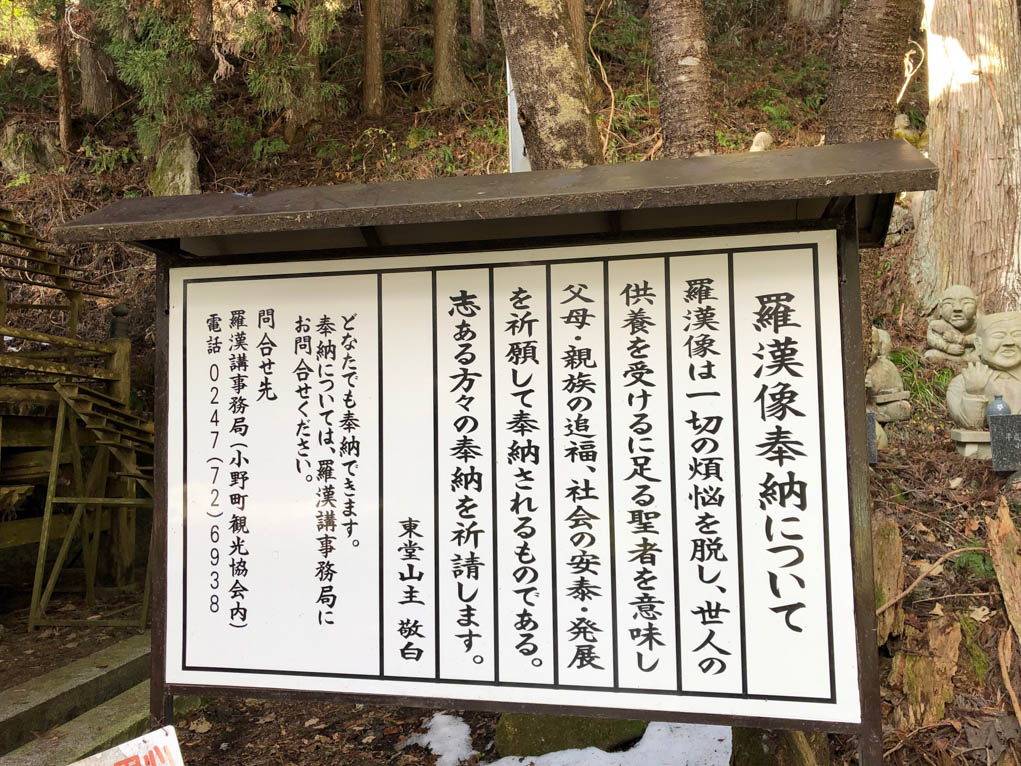 羅漢像奉納について
羅漢像は一切の煩悩を脱し、世人の
供養を受けるに足る聖者を意味し
父母・親族の追福、社会の安泰・発展
を祈願して奉納されるものである。
志ある方々の奉納を祈請します。
東堂山主 敬白
どなたでも奉納できます。
奉納については、羅漢講事務局に
お問合せください。
問合せ先
羅漢講事務局(小野町観光協会内)
電話 0247(72)6938